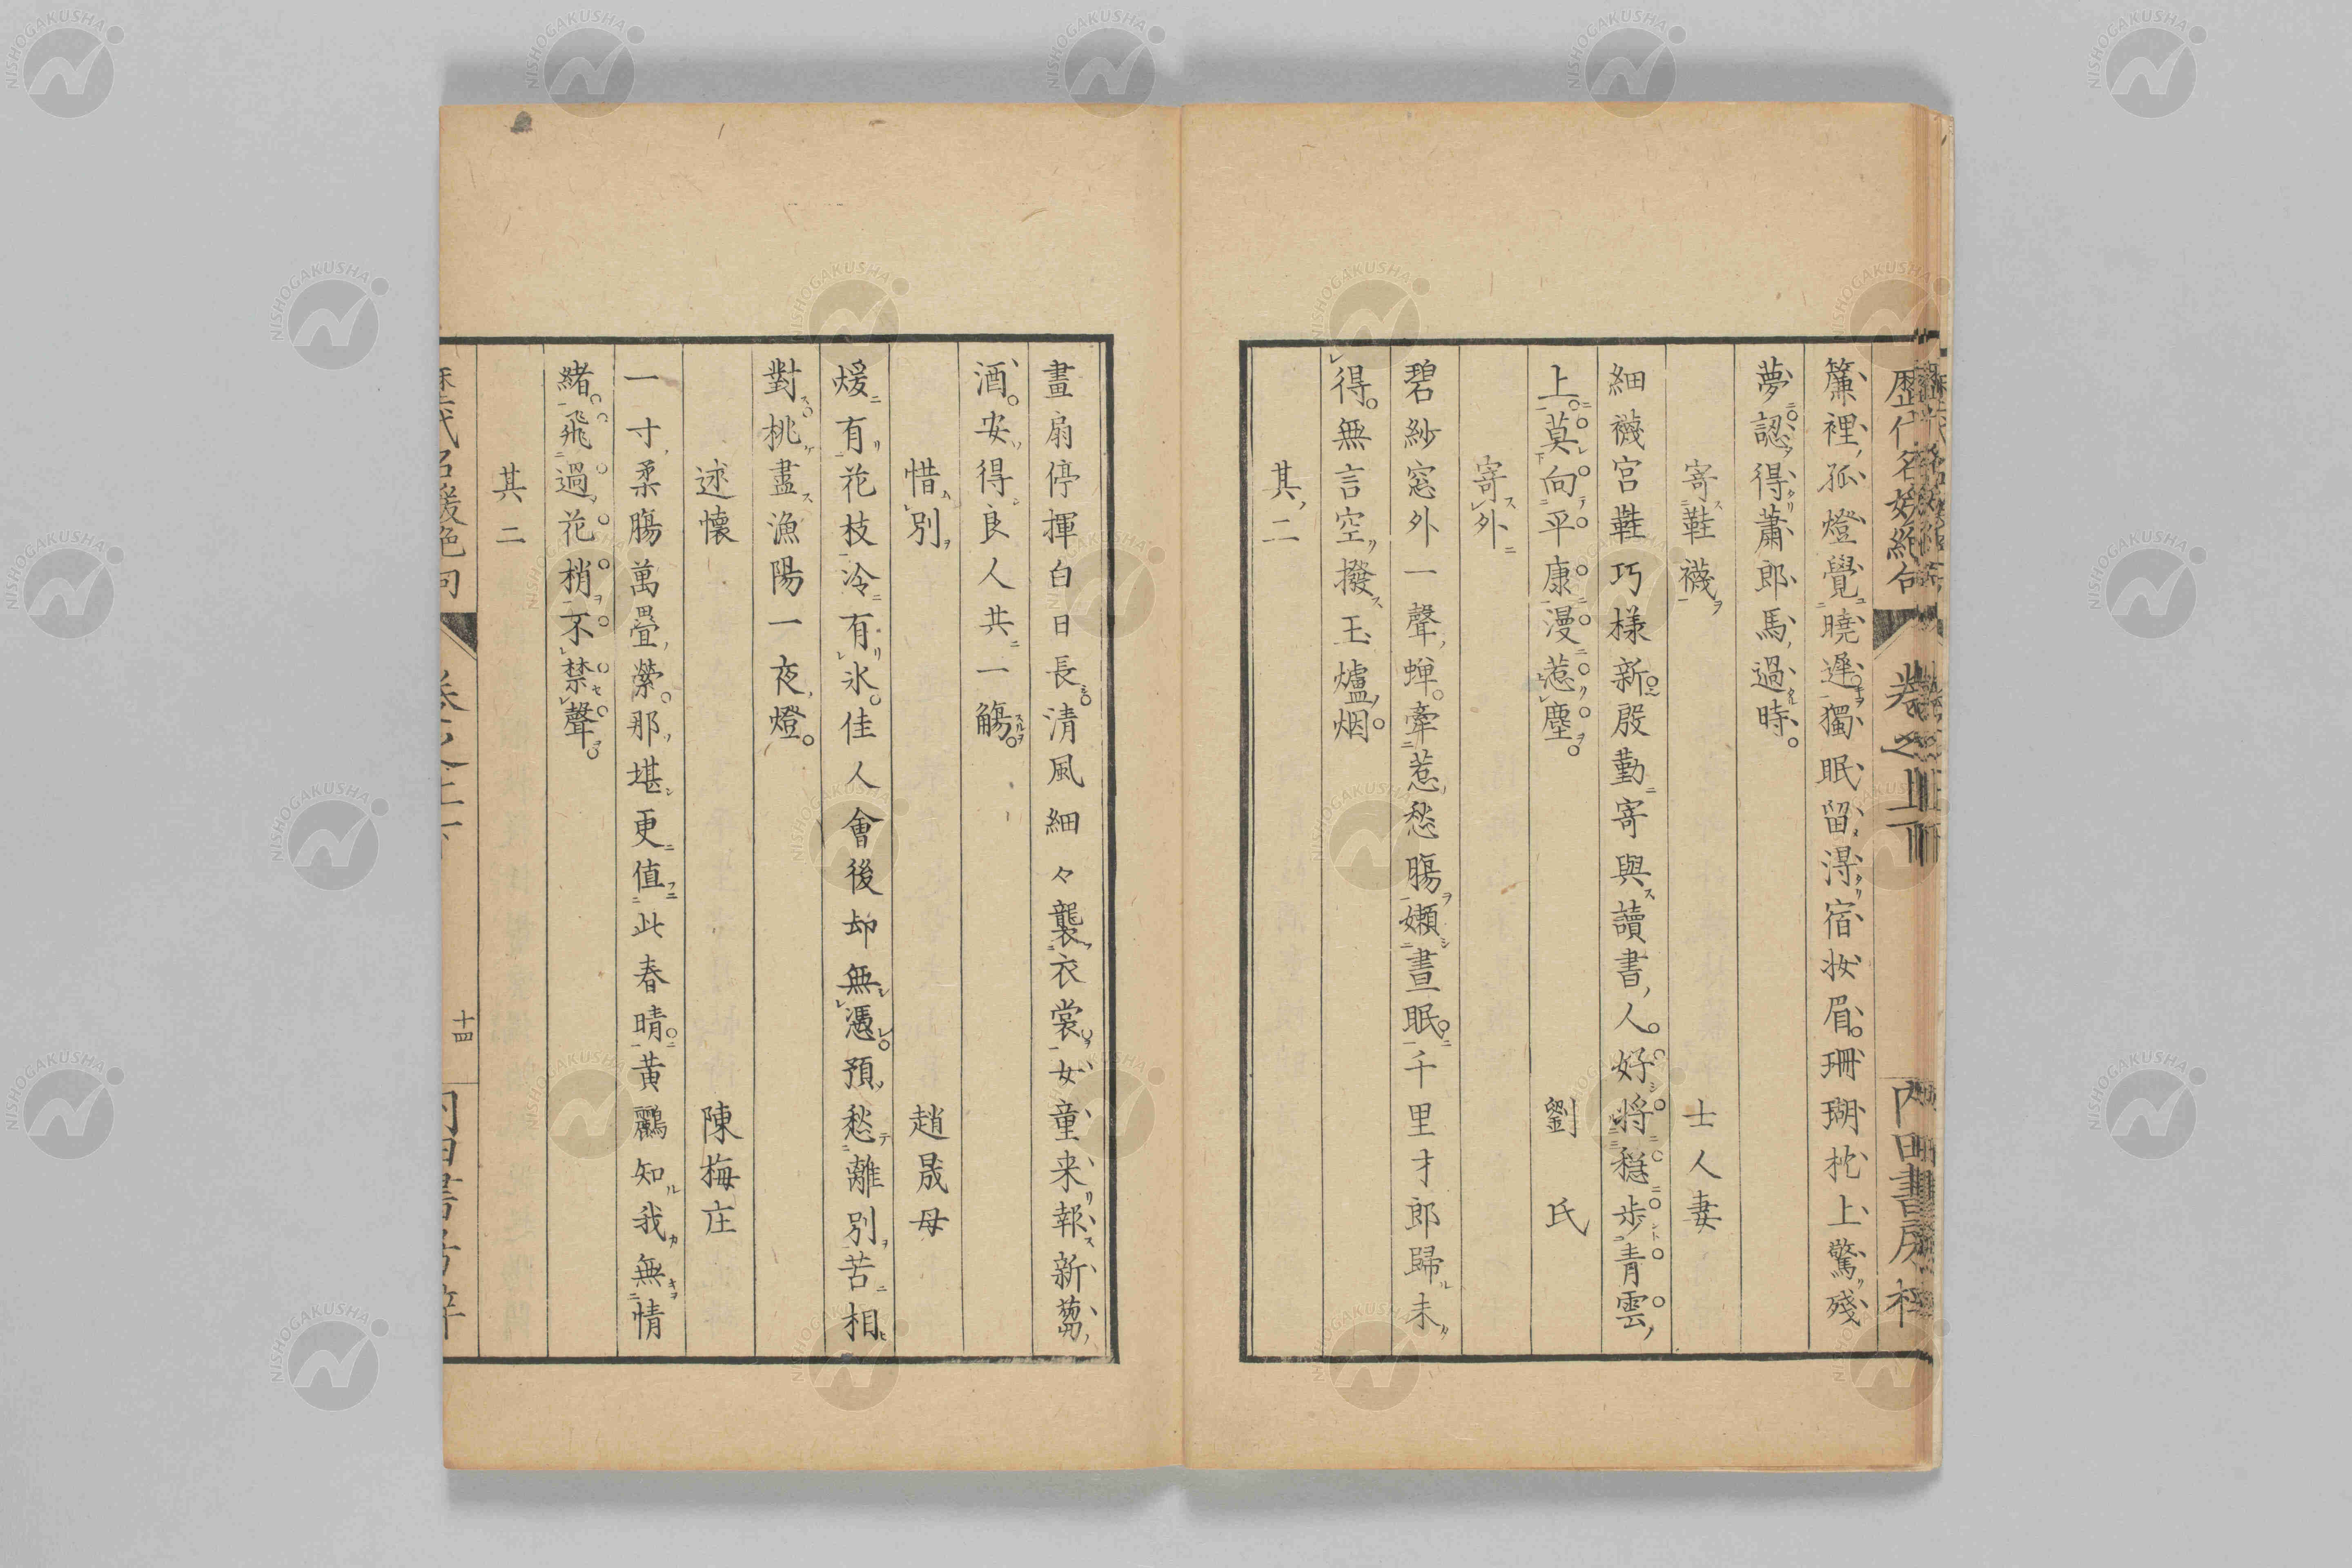 歴代名媛絶句 卷之上下 内田書房梓
簾裡孤燈覺曉遲獨眠留得宿妝眉珊瑚枕上驚殘
夢認得蕭郎馬過時
寄鞋襪 士人妻
細襪宮鞋巧樣新殷勤寄與讀書人好將穩步青雲
上莫向平康漫惹塵
寄外 劉氏
碧紗窓外一聲蟬牽惹愁腸嬾晝眠千里才郎歸未
得無言空撥玉爐烟
其二
畫扇停揮白日長清風細々襲衣裳女童来報新蒭
酒安得良人共一觴
惜別 趙晟母
煖有花枝冷有氷佳人會後却無憑預愁離別苦相
對挑盡漁陽一夜燈
述懷 陳梅庄
一寸柔腸萬疊縈那堪更值此春晴黃鸝知我無情
緒飛過花梢不禁聲
其二
十四
NISHOGAKUSHA